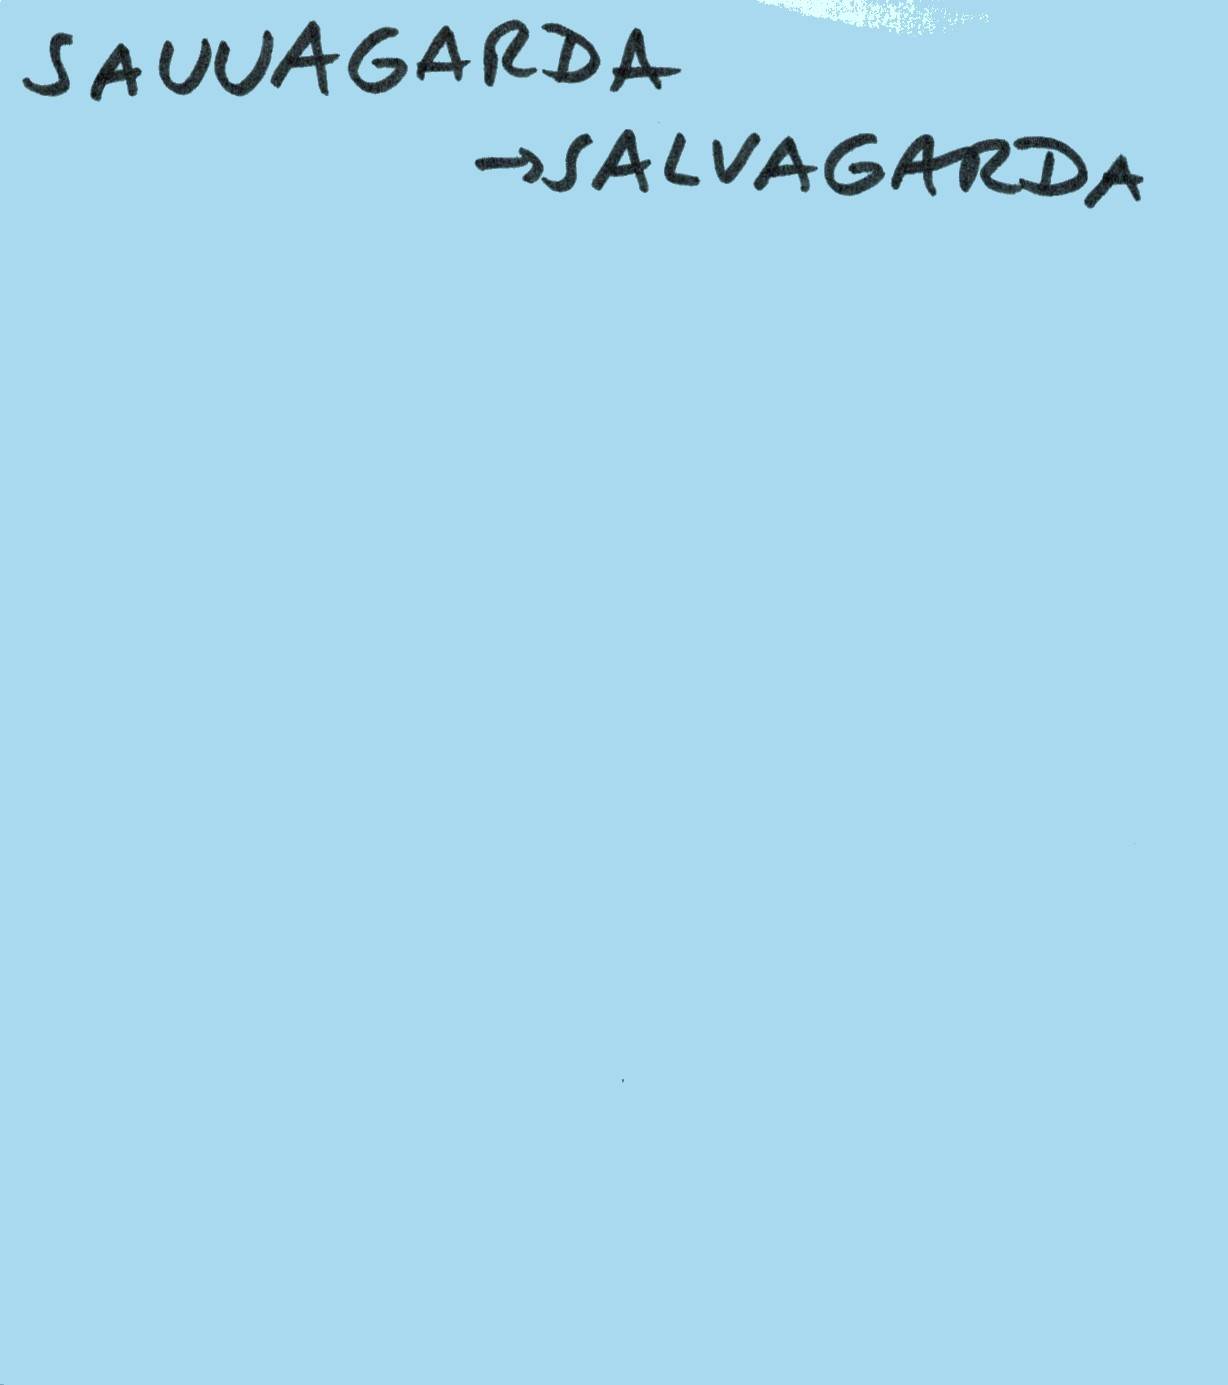 SAUVAGARDA
→SALVAGARDA